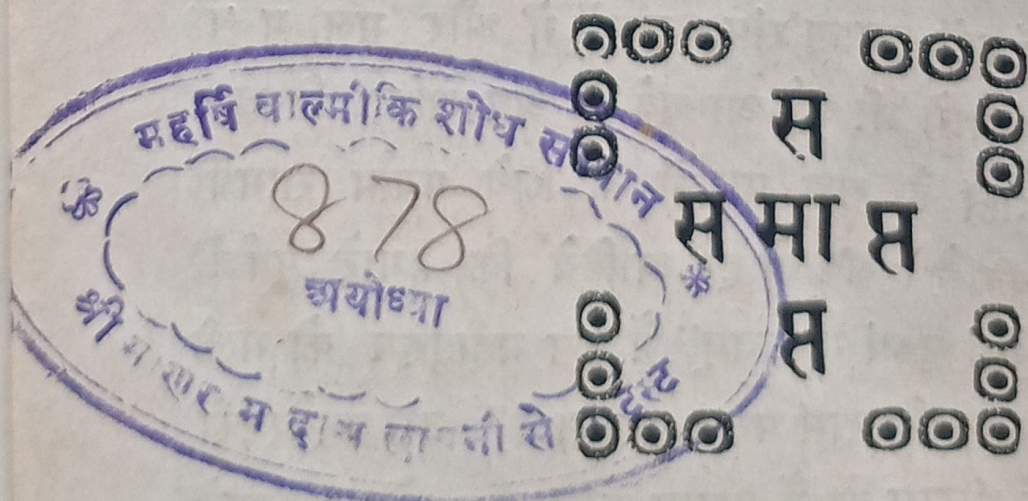 महर्षि वाल्मीकि शोध संस्थान
878
अयोध्या
श्री से ट्रस्ट
स
स मा प्त
प्त